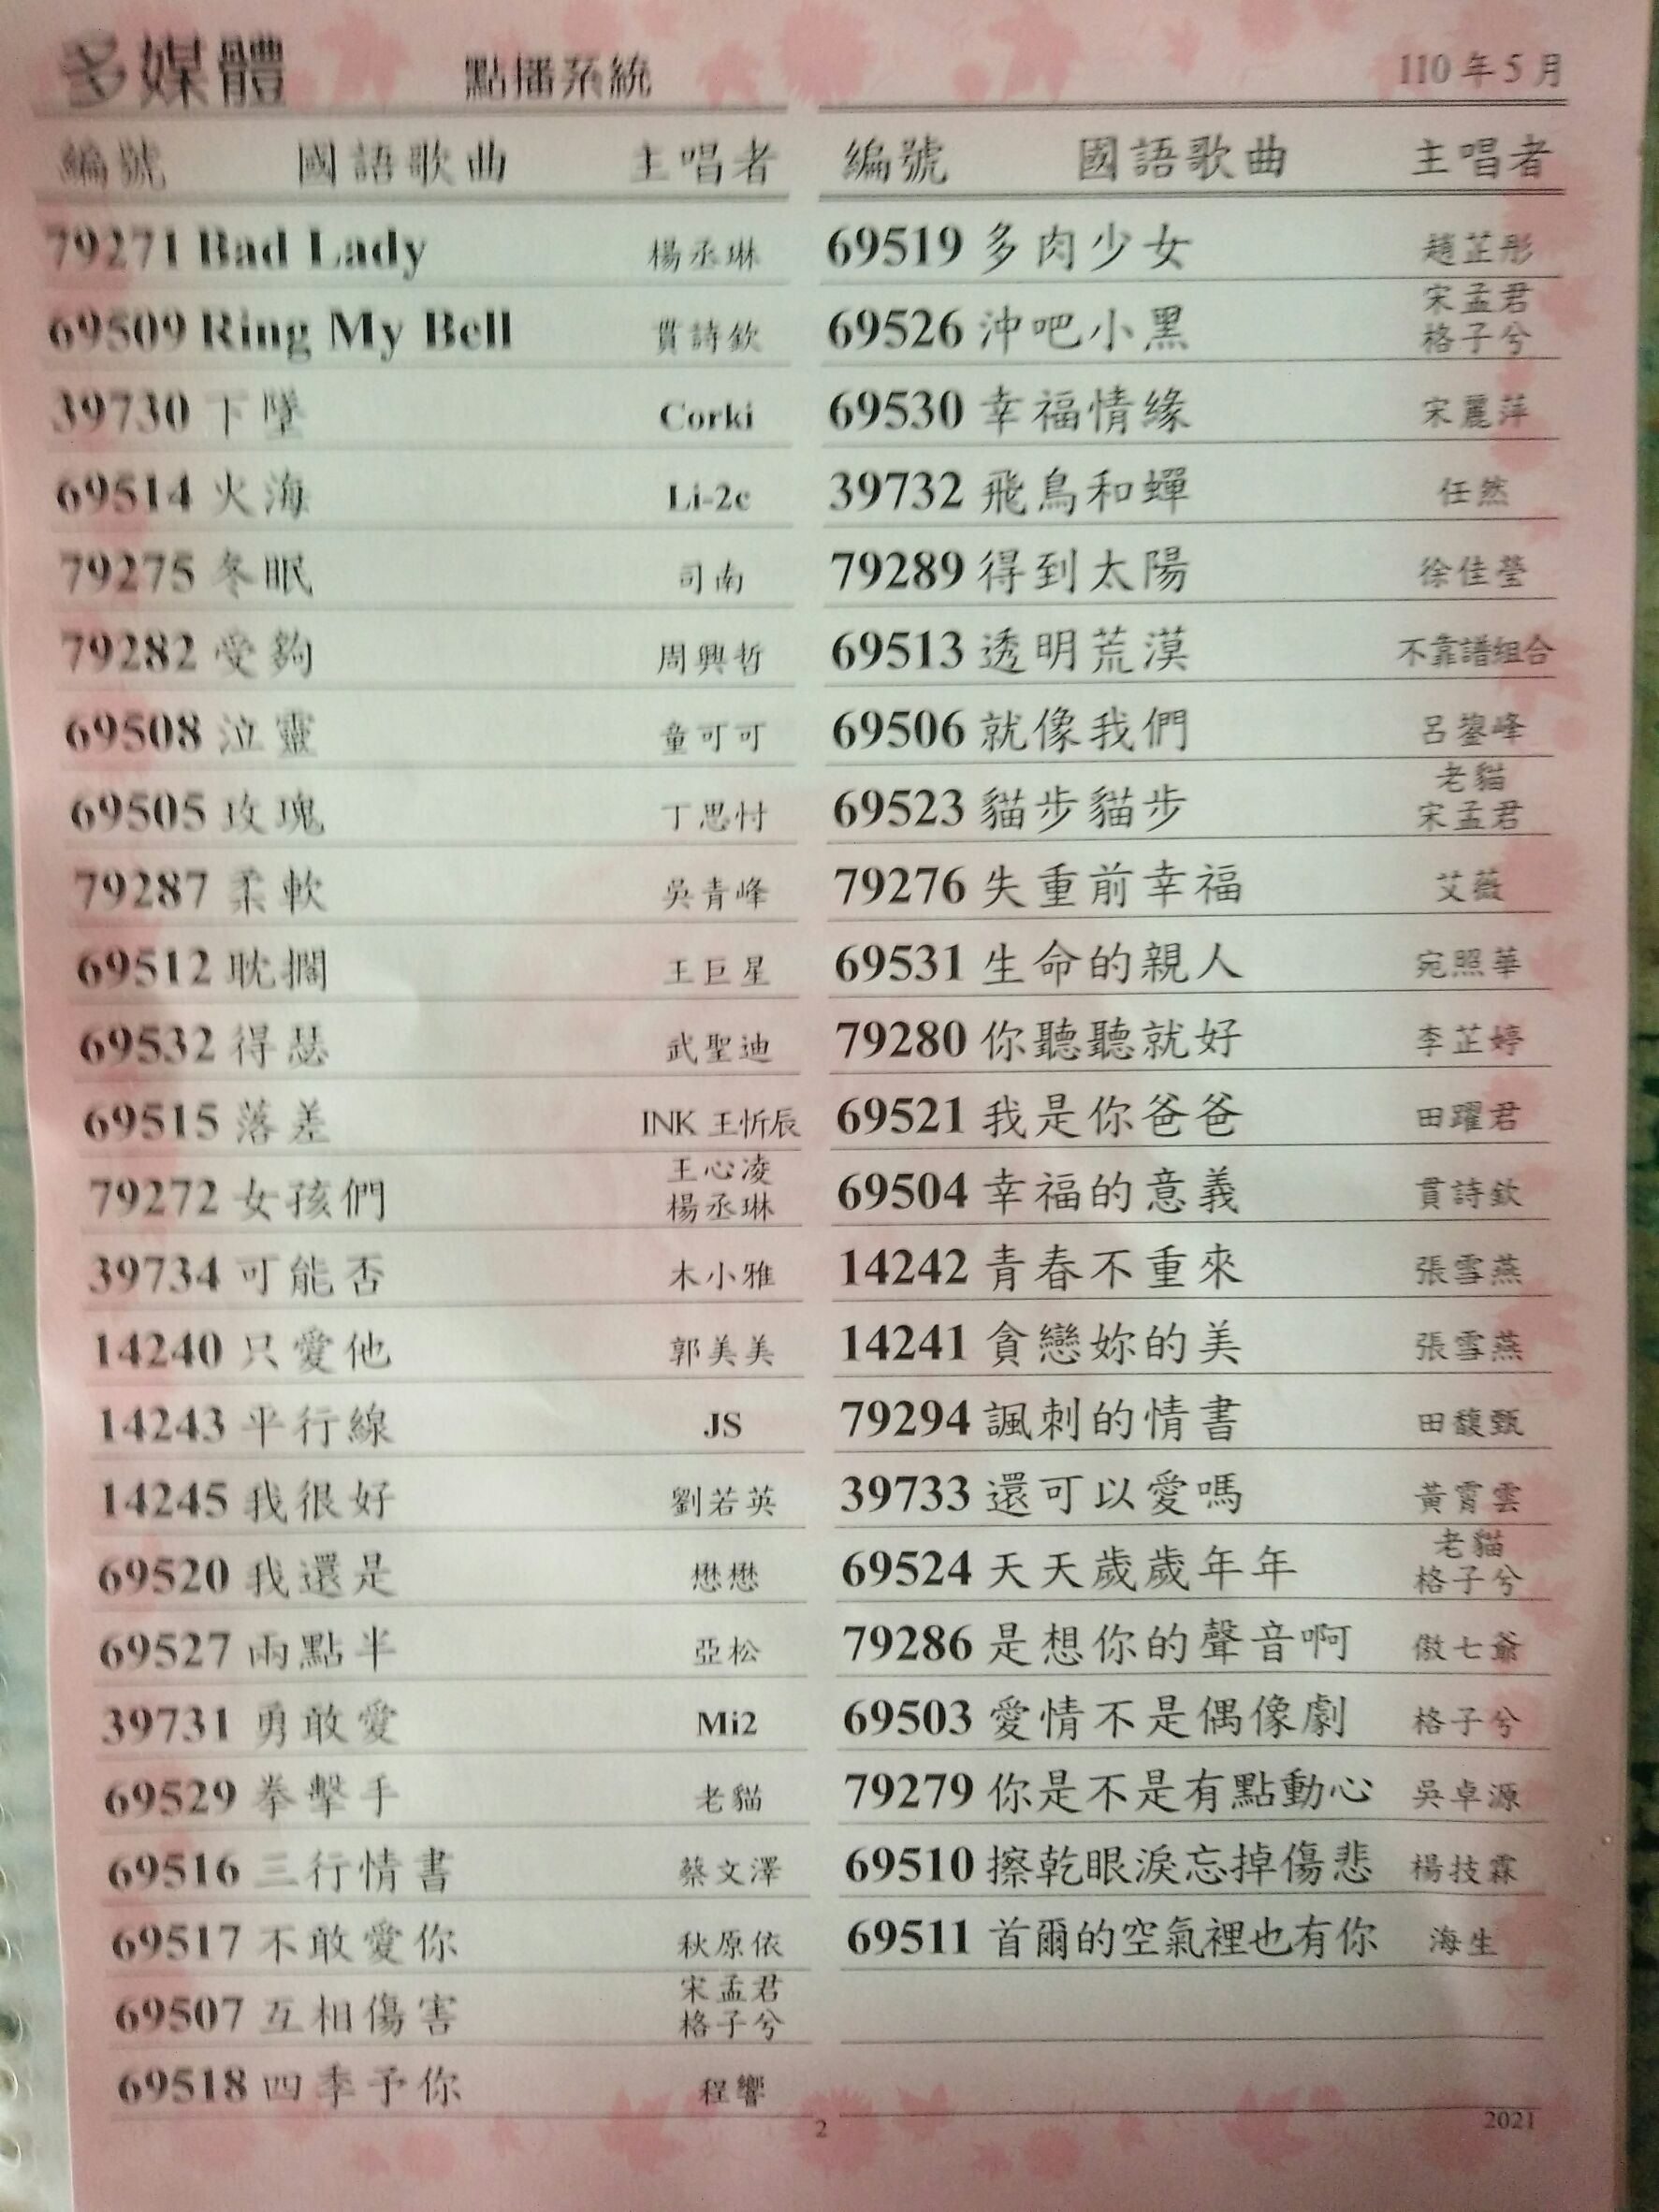 多媒體 點播系統 110年5月
編號 國語歌曲 主唱者
79271 Bad Lady 楊丞琳
69509 Ring My Bell 貫詩欽
39730 下墜 Corki
69514 火海 Li-2c
79275 冬眠 司南
79282 受夠 周興哲
69508 泣靈 童可可
69505 玫瑰 丁思忖
79287 柔軟 吳青峰
69512 耽擱 王巨星
69532 得瑟 武聖迪
69515 落差 INK 王忻辰
79272 女孩們 王心凌 楊丞琳
39734 可能否 木小雅
14240 只愛他 郭美美
14243 平行線 JS
14245 我很好 劉若英
69520 我還是 懋懋
69527 兩點半 亞松
39731 勇敢愛 Mi2
69529 拳擊手 老貓
69516 三行情書 蔡文澤
69517 不敢愛你 秋原依
69507 互相傷害 宋孟君 格子兮
69518 四季予你 程響
編號 國語歌曲 主唱者
69519 多肉少女 趙芷彤
69526 沖吧小黑 宋孟君 格子兮
69530 幸福情緣 宋麗萍
39732 飛鳥和蟬 任然
79289 得到太陽 徐佳瑩
69513 透明荒漠 不靠譜組合
69506 就像我們 呂鋆峰
69523 貓步貓步 老貓 宋孟君
79276 失重前幸福 艾薇
69531 生命的親人 宛照華
79280 你聽聽就好 李芷婷
69521 我是你爸爸 田躍君
69504 幸福的意義 貫詩欽
14242 青春不重來 張雪燕
14241 貪戀妳的美 張雪燕
79294 諷刺的情書 田馥甄
39733 還可以愛嗎 黃霄雲
69524 天天歲歲年年 老貓 格子兮
79286 是想你的聲音啊 傲七爺
69503 愛情不是偶像劇 格子兮
79279 你是不是有點動心 吳卓源
69510 擦乾眼淚忘掉傷悲 楊技霖
69511 首爾的空氣裡也有你 海生
2
2021